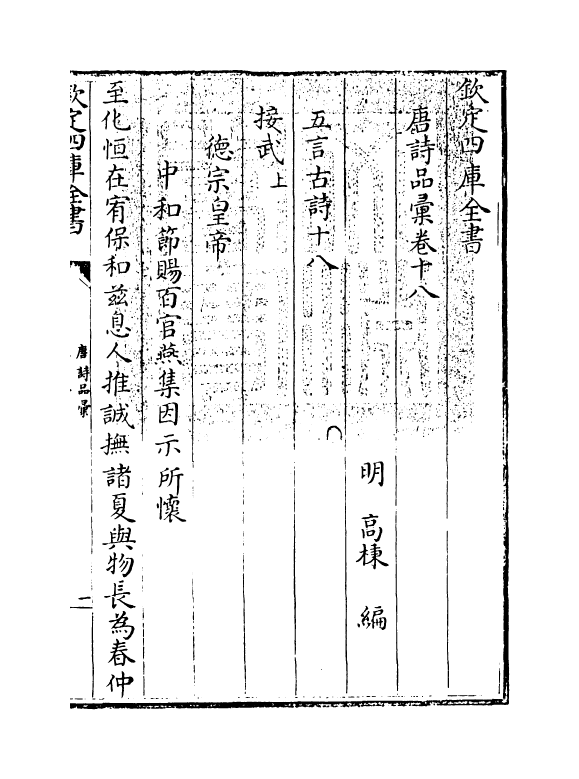 欽定四庫全書
唐詩品彙卷十八
明 高棅 編
五言古詩十八
接武上
德宗皇帝
中和節賜百官燕集因示所懷
至化恒在宥保和兹息人推誠撫諸夏與物長為春仲
欽定四庫全書
唐詩品彙
一